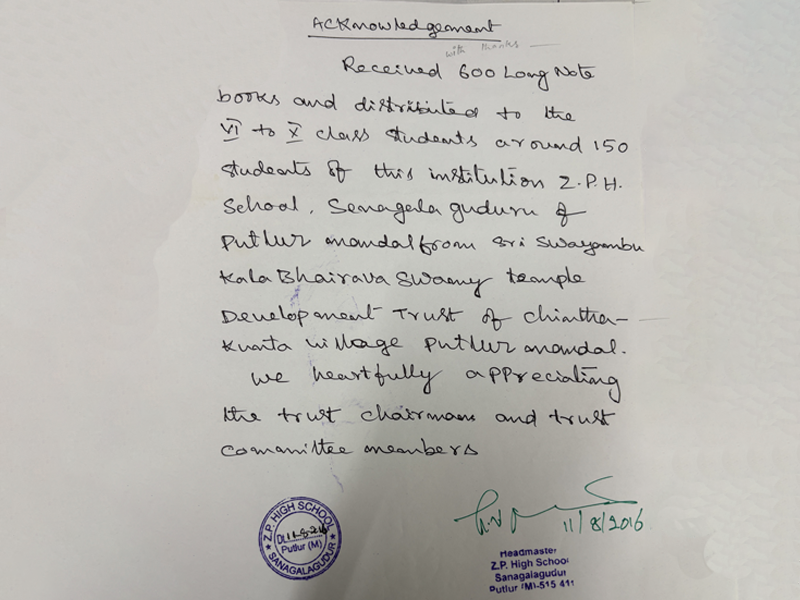 Acknowledgement
with thanks
Received 600 Long Note
books and distributed to the
VI to X class students around 150
students of this institution Z.P.H.
School, Senagala guduru of
Putlur mandal from Sri Swayambu
Kala Bhairava Swamy temple
Development Trust of Chintha-
Kunta village Putlur mandal.
We heartfully appreciating
the trust chairman and trust
committee members
11/8/2016
Z.P. HIGH SCHOOL
Dt.11-8-2016
Putlur (M)
★ SANAGALAGUDUR ★
Headmaster
Z.P. High School
Sanagalagudur
Putlur (M)-515 411